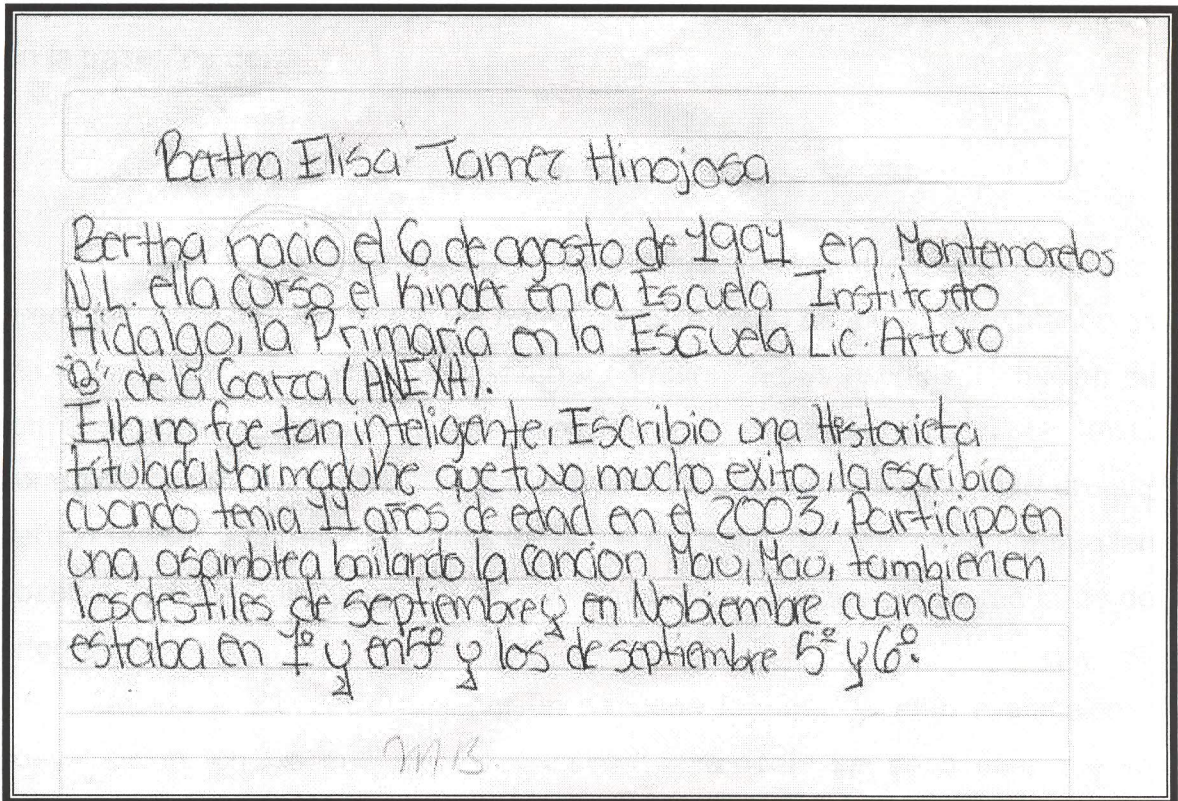 Bertha Elisa Tamez Hinojosa
Bertha nacio el 6 de agosto de 1991 en Montemorelos
N.L. ella curso el Kinder en la Escuela Instituto
Hidalgo, la Primaria en la Escuela Lic. Arturo
"B" de la Garza (ANEXA).
Ella no fue tan inteligente, Escribio una Historieta
titulada Marmaduke que tuvo mucho exito, la escribio
cuando tenia 11 años de edad en el 2003, Participo en
una asamblea bailando la cancion Mau, Mau, tambien en
los desfiles de septiembre y en Nobiembre cuando
estaba en 1º y en 5º y los de septiembre 5º y 6º.
M.B.